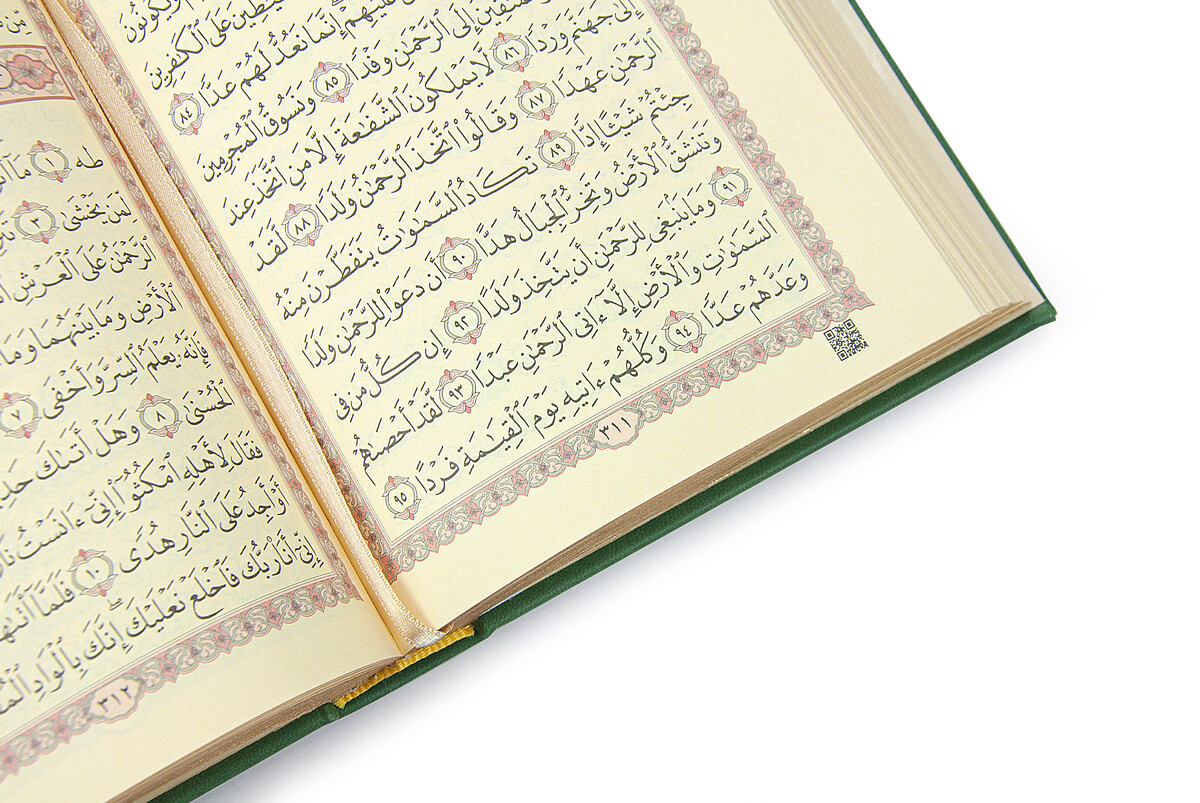 ويكونون
شيطين على الكفرين
عليهم إنما نعد لهم عدا ٨٤
إلى الرحمن وفدا ٨٥ ونسوق المجرمين
إلى جهنم وردا ٨٦ لا يملكون الشفعة إلا من اتخذ عند
الرحمن عهدا ٨٧ وقالوا اتخذ الرحمن ولدا ٨٨ لقد
جئتم شيئا إدا ٨٩ تكاد السموت يتفطرن منه
وتنشق الأرض وتخر الجبال هدا ٩٠ أن دعوا للرحمن ولدا
٩١ وما ينبغي للرحمن أن يتخذ ولدا ٩٢ إن كل من في
السموت والأرض إلا ءاتي الرحمن عبدا ٩٣ لقد أحصىهم
وعدهم عدا ٩٤ وكلهم ءاتيه يوم القيمة فردا ٩٥
٣١١
طه ١ ما
لمن يخشى ٣
الرحمن على العرش
الأرض وما بينهما وما
فإنه يعلم السر وأخفى ٧
الحسنى ٨ وهل أتىك
فقال لأهله امكثوا إني ءانست
أو أجد على النار هدى ١٠ فلما
إني أنا ربك فاخلع نعليك إنك بالواد
٣١٢